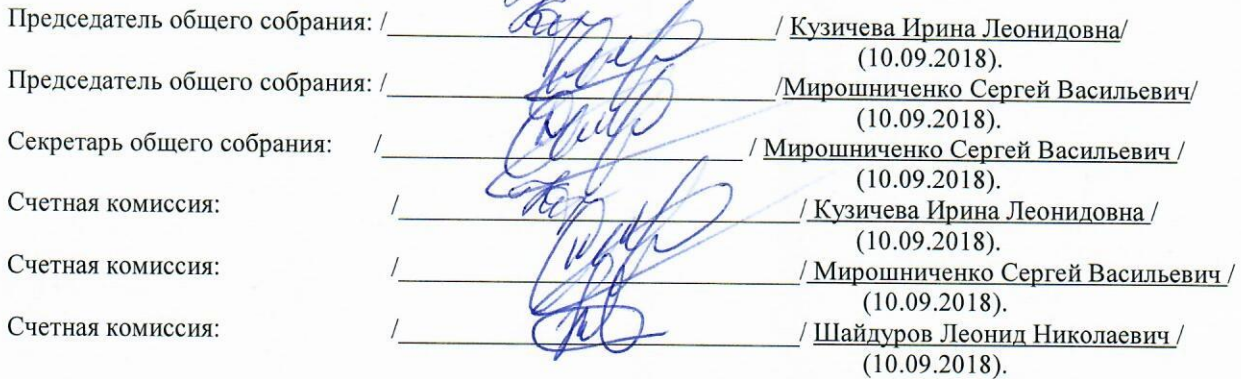 Председатель общего собрания: /____________/ Кузичева Ирина Леонидовна/
(10.09.2018).
Председатель общего собрания: /____________/Мирошниченко Сергей Васильевич/
(10.09.2018).
Секретарь общего собрания: /____________/ Мирошниченко Сергей Васильевич /
(10.09.2018).
Счетная комиссия: /____________/ Кузичева Ирина Леонидовна /
(10.09.2018).
Счетная комиссия: /____________/ Мирошниченко Сергей Васильевич /
(10.09.2018).
Счетная комиссия: /____________/ Шайдуров Леонид Николаевич /
(10.09.2018).